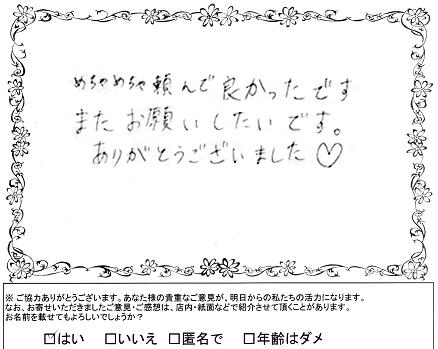 めちゃめちゃ頼んで良かったです
またお願いしたいです。
ありがとうございました♡
※ ご協力ありがとうございます。あなた様の貴重なご意見が、明日からの私たちの活力になります。
なお、お寄せいただきましたご意見・ご感想は、店内・紙面などで紹介させて頂くことがあります。
お名前を載せてもよろしいでしょうか？
☑はい □いいえ □匿名で □年齢はダメ